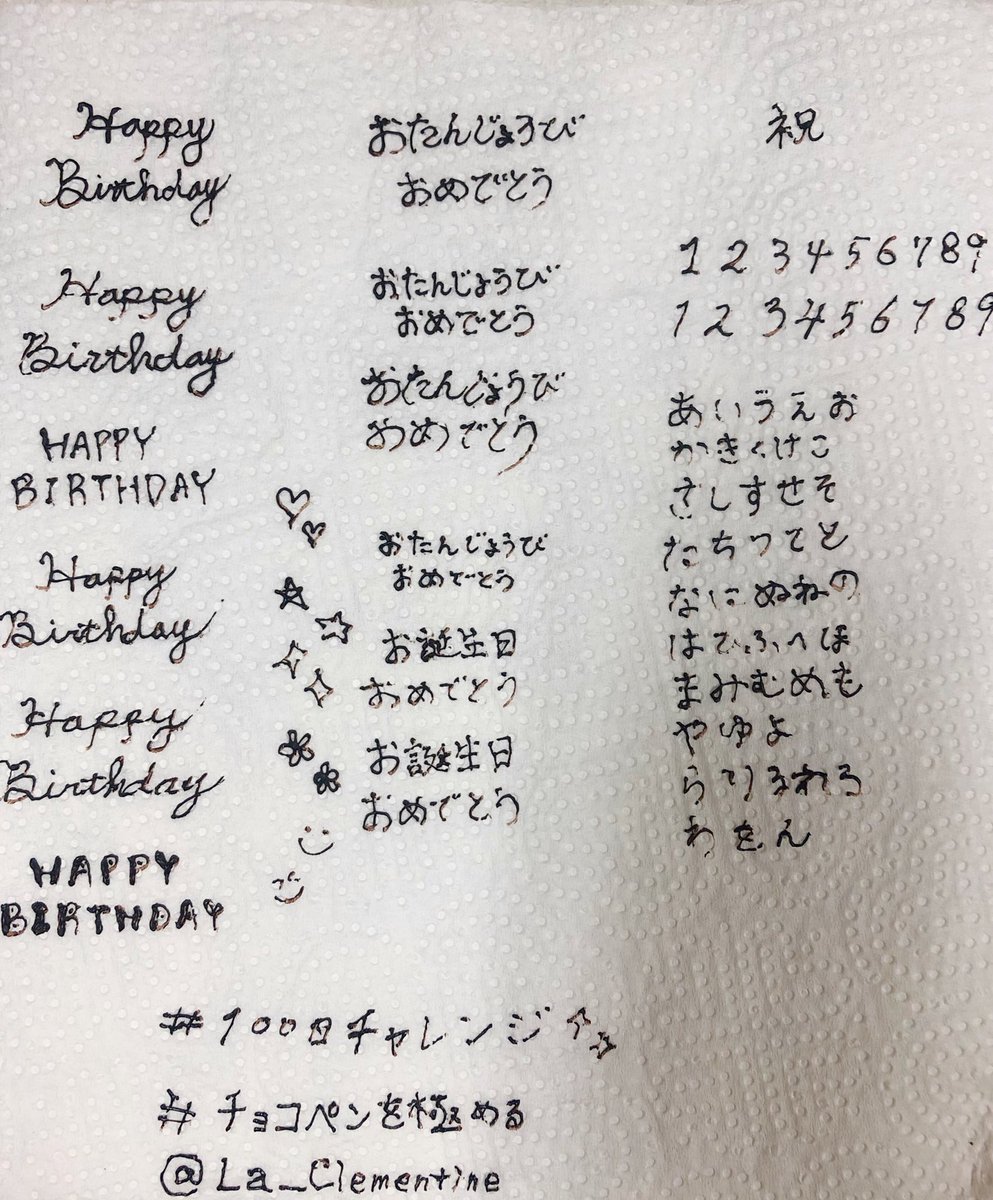 Happy
Birthday
Happy
Birthday
HAPPY
BIRTHDAY
Happy
Birthday
Happy
Birthday
HAPPY
BIRTHDAY
おたんじょうび
おめでとう
おたんじょうび
おめでとう
おたんじょうび
おめでとう
おたんじょうび
おめでとう
お誕生日
おめでとう
お誕生日
おめでとう
祝
1 2 3 4 5 6 7 8 9
1 2 3 4 5 6 7 8 9
あいうえお
かきくけこ
さしすせそ
たちつてと
なにぬねの
はひふへほ
まみむめも
やゆよ
らりるれろ
わをん
#100日チャレンジ
#チョコペンを極める
@La_Clementine